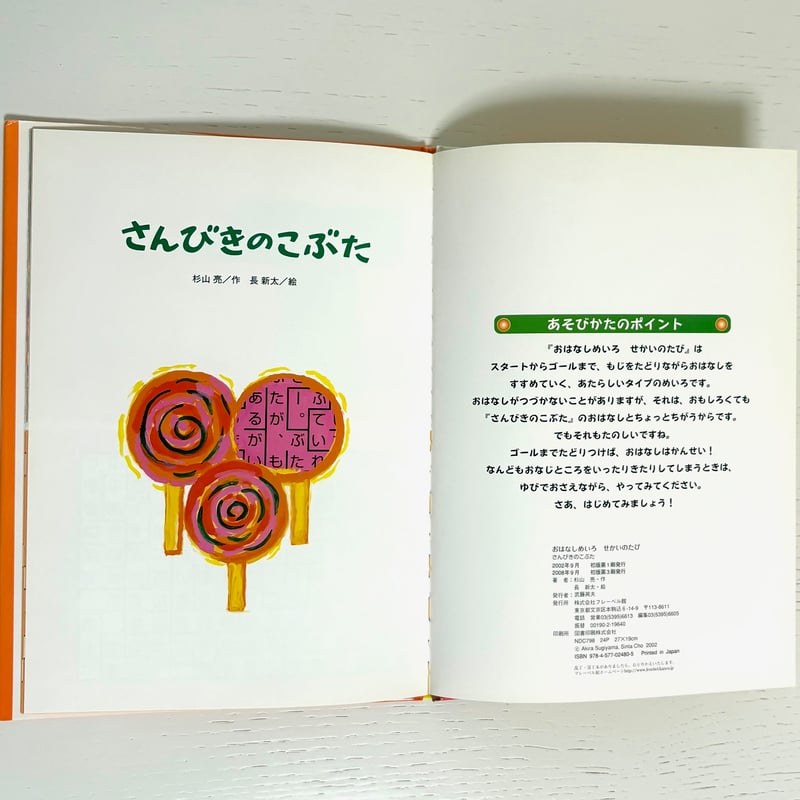 さんびきのこぶた
杉山 亮／作　長 新太／絵
ふていわ
ー。ぶた
たが、も
あるがい
あそびかたのポイント
『おはなしめいろ　せかいのたび』は
スタートからゴールまで、もじをたどりながらおはなしを
すすめていく、あたらしいタイプのめいろです。
おはなしがつづかないことがありますが、それは、おもしろくても
『さんびきのこぶた』のおはなしとちょっとちがうからです。
でもそれもたのしいですね。
ゴールまでたどりつけば、おはなしはかんせい！
なんどもおなじところをいったりきたりしてしまうときは、
ゆびでおさえながら、やってみてください。
さあ、はじめてみましょう！
おはなしめいろ　せかいのたび
さんびきのこぶた
2002年9月　初版第1刷発行
2008年9月　初版第3刷発行
著　者：杉山　亮・作
長　新太・絵
発行者：武藤英夫
発行所　株式会社フレーベル館
東京都文京区本駒込6-14-9　〒113-8611
電話　営業03(5395)6613　編集03(5395)6605
振替　00190-2-19640
印刷所　図書印刷株式会社
NDC798　24P　27×19cm
© Akira Sugiyama, Sinta Cho 2002
ISBN 978-4-577-02480-5　Printed in Japan
乱丁・落丁本がありましたら、おとりかえいたします。
フレーベル館ホームページhttp://www.froebel-kan.co.jp